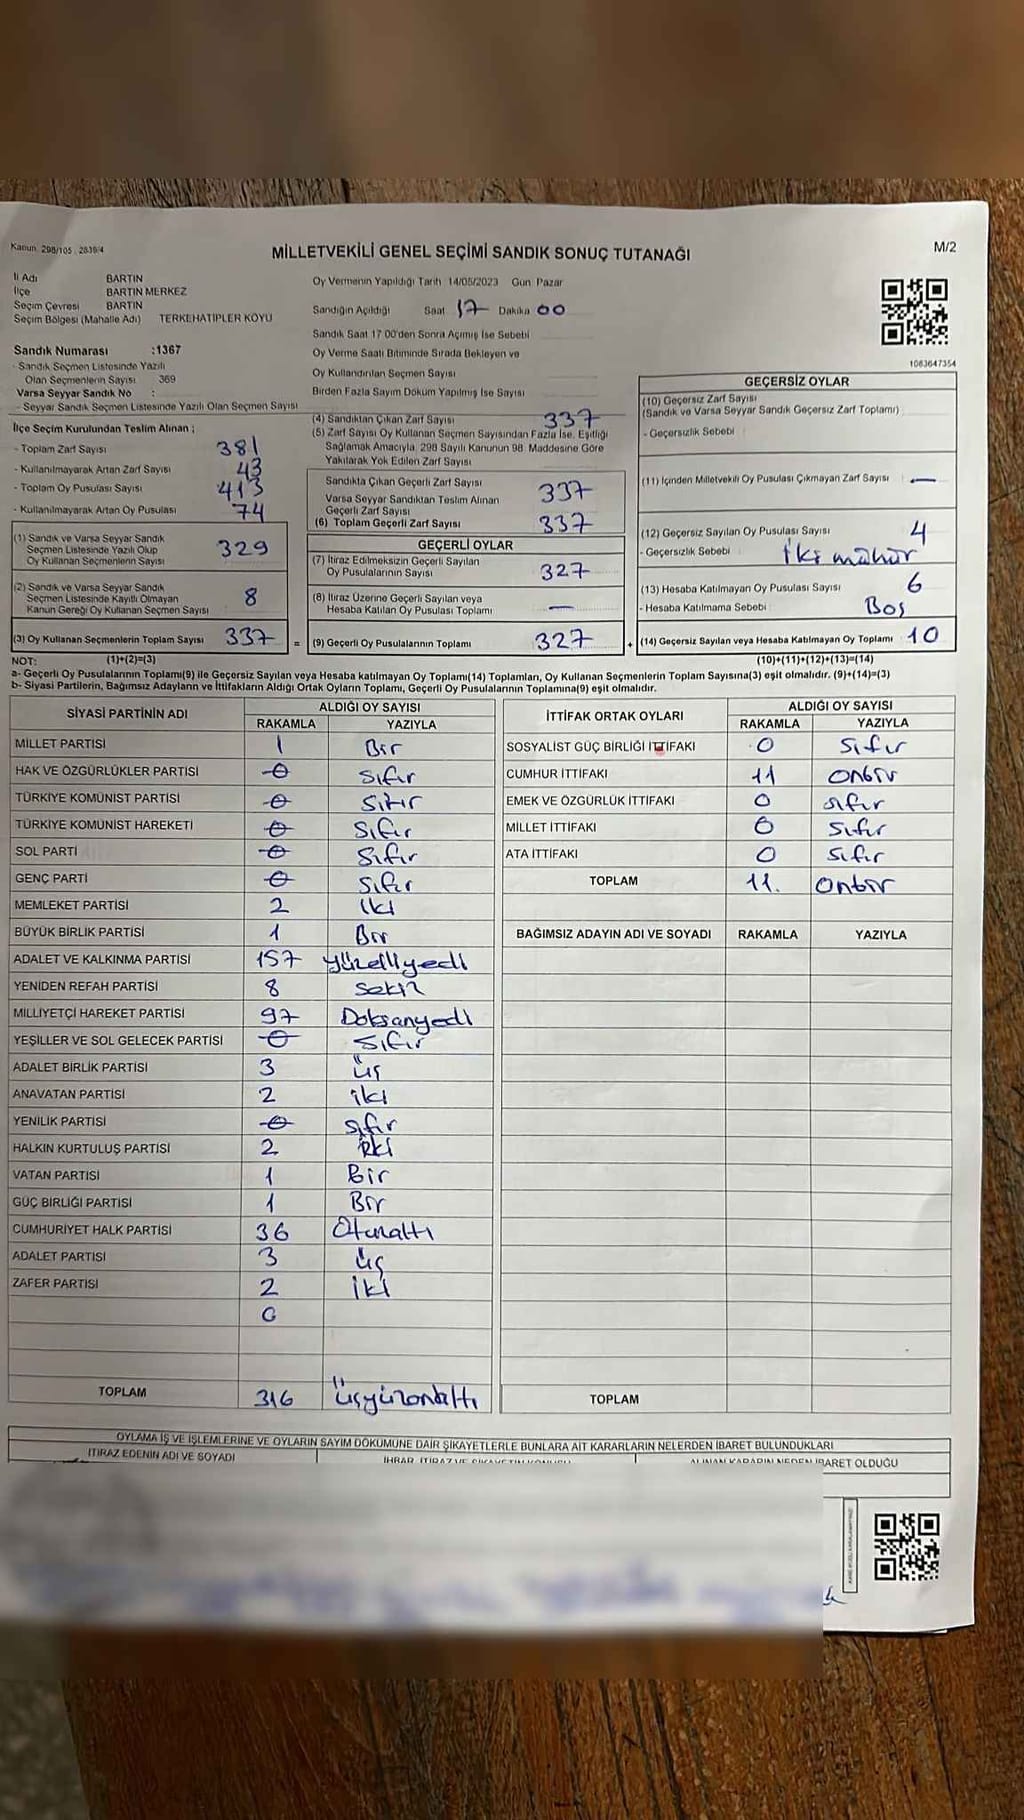 Kanun 298/105 . 2839/4
MİLLETVEKİLİ GENEL SEÇİMİ SANDIK SONUÇ TUTANAĞI
M/2
İl Adı BARTIN
İlçe BARTIN MERKEZ
Seçim Çevresi BARTIN
Seçim Bölgesi (Mahalle Adı) TERKEHATİPLER KÖYÜ
Sandık Numarası :1367
- Sandık Seçmen Listesinde Yazılı
Olan Seçmenlerin Sayısı 369
Varsa Seyyar Sandık No :
- Seyyar Sandık Seçmen Listesinde Yazılı Olan Seçmen Sayısı
İlçe Seçim Kurulundan Teslim Alınan ;
- Toplam Zarf Sayısı 381
- Kullanılmayarak Artan Zarf Sayısı 43
- Toplam Oy Pusulası Sayısı 413
- Kullanılmayarak Artan Oy Pusulası 74
(1) Sandık ve Varsa Seyyar Sandık
Seçmen Listesinde Yazılı Olup
Oy Kullanan Seçmenlerin Sayısı 329
(2) Sandık ve Varsa Seyyar Sandık
Seçmen Listesinde Kayıtlı Olmayan
Kanun Gereği Oy Kullanan Seçmen Sayısı 8
(3) Oy Kullanan Seçmenlerin Toplam Sayısı 337 =
Oy Vermenin Yapıldığı Tarih 14/05/2023 Gün Pazar
Sandığın Açıldığı Saat 17 Dakika 00
Sandık Saat 17 00'den Sonra Açılmış İse Sebebi
Oy Verme Saati Bitiminde Sırada Bekleyen ve
Oy Kullandırılan Seçmen Sayısı
Birden Fazla Sayım Döküm Yapılmış İse Sayısı
(4) Sandıktan Çıkan Zarf Sayısı 337
(5) Zarf Sayısı Oy Kullanan Seçmen Sayısından Fazla İse, Eşitliği
Sağlamak Amacıyla, 298 Sayılı Kanunun 98. Maddesine Göre
Yakılarak Yok Edilen Zarf Sayısı
Sandıkta Çıkan Geçerli Zarf Sayısı 337
Varsa Seyyar Sandıktan Teslim Alınan
Geçerli Zarf Sayısı
(6) Toplam Geçerli Zarf Sayısı 337
GEÇERLİ OYLAR
(7) İtiraz Edilmeksizin Geçerli Sayılan
Oy Pusulalarının Sayısı 327
(8) İtiraz Üzerine Geçerli Sayılan veya
Hesaba Katılan Oy Pusulası Toplamı —
(9) Geçerli Oy Pusulalarının Toplamı 327 +
1083647354
GEÇERSİZ OYLAR
(10) Geçersiz Zarf Sayısı
(Sandık ve Varsa Seyyar Sandık Geçersiz Zarf Toplamı)
- Geçersizlik Sebebi
(11) İçinden Milletvekili Oy Pusulası Çıkmayan Zarf Sayısı —
(12) Geçersiz Sayılan Oy Pusulası Sayısı 4
- Geçersizlik Sebebi iki mühür
(13) Hesaba Katılmayan Oy Pusulası Sayısı 6
- Hesaba Katılmama Sebebi Boş
(14) Geçersiz Sayılan veya Hesaba Katılmayan Oy Toplamı 10
NOT: (1)+(2)=(3) (10)+(11)+(12)+(13)=(14)
a- Geçerli Oy Pusulalarının Toplamı(9) ile Geçersiz Sayılan veya Hesaba katılmayan Oy Toplamı(14) Toplamları, Oy Kullanan Seçmenlerin Toplam Sayısına(3) eşit olmalıdır. (9)+(14)=(3)
b- Siyasi Partilerin, Bağımsız Adayların ve İttifakların Aldığı Ortak Oyların Toplamı, Geçerli Oy Pusulalarının Toplamına(9) eşit olmalıdır.
SİYASİ PARTİNİN ADI ALDIĞI OY SAYISI
RAKAMLA YAZIYLA
MİLLET PARTİSİ 1 Bir
HAK VE ÖZGÜRLÜKLER PARTİSİ 0 sıfır
TÜRKİYE KOMÜNİST PARTİSİ 0 sıfır
TÜRKİYE KOMÜNİST HAREKETİ 0 Sıfır
SOL PARTİ 0 Sıfır
GENÇ PARTİ 0 Sıfır
MEMLEKET PARTİSİ 2 iki
BÜYÜK BİRLİK PARTİSİ 1 Bir
ADALET VE KALKINMA PARTİSİ 157 yüzelliyedi
YENİDEN REFAH PARTİSİ 8 sekiz
MİLLİYETÇİ HAREKET PARTİSİ 97 Doksanyedi
YEŞİLLER VE SOL GELECEK PARTİSİ 0 Sıfır
ADALET BİRLİK PARTİSİ 3 üç
ANAVATAN PARTİSİ 2 iki
YENİLİK PARTİSİ 0 sıfır
HALKIN KURTULUŞ PARTİSİ 2 iki
VATAN PARTİSİ 1 Bir
GÜÇ BİRLİĞİ PARTİSİ 1 Bir
CUMHURİYET HALK PARTİSİ 36 Otuzaltı
ADALET PARTİSİ 3 üç
ZAFER PARTİSİ 2 iki
0
TOPLAM 316 üçyüzonaltı
İTTİFAK ORTAK OYLARI ALDIĞI OY SAYISI
RAKAMLA YAZIYLA
SOSYALİST GÜÇ BİRLİĞİ İTTİFAKI 0 Sıfır
CUMHUR İTTİFAKI 11 onbir
EMEK VE ÖZGÜRLÜK İTTİFAKI 0 sıfır
MİLLET İTTİFAKI 0 Sıfır
ATA İTTİFAKI 0 Sıfır
TOPLAM 11. Onbir
BAĞIMSIZ ADAYIN ADI VE SOYADI RAKAMLA YAZIYLA
TOPLAM
OYLAMA İŞ VE İŞLEMLERİNE VE OYLARIN SAYIM DÖKÜMÜNE DAİR ŞİKAYETLERLE BUNLARA AİT KARARLARIN NELERDEN İBARET BULUNDUKLARI
İTİRAZ EDENİN ADI VE SOYADI
ALINAN KARARIN NEDEN İBARET OLDUĞU